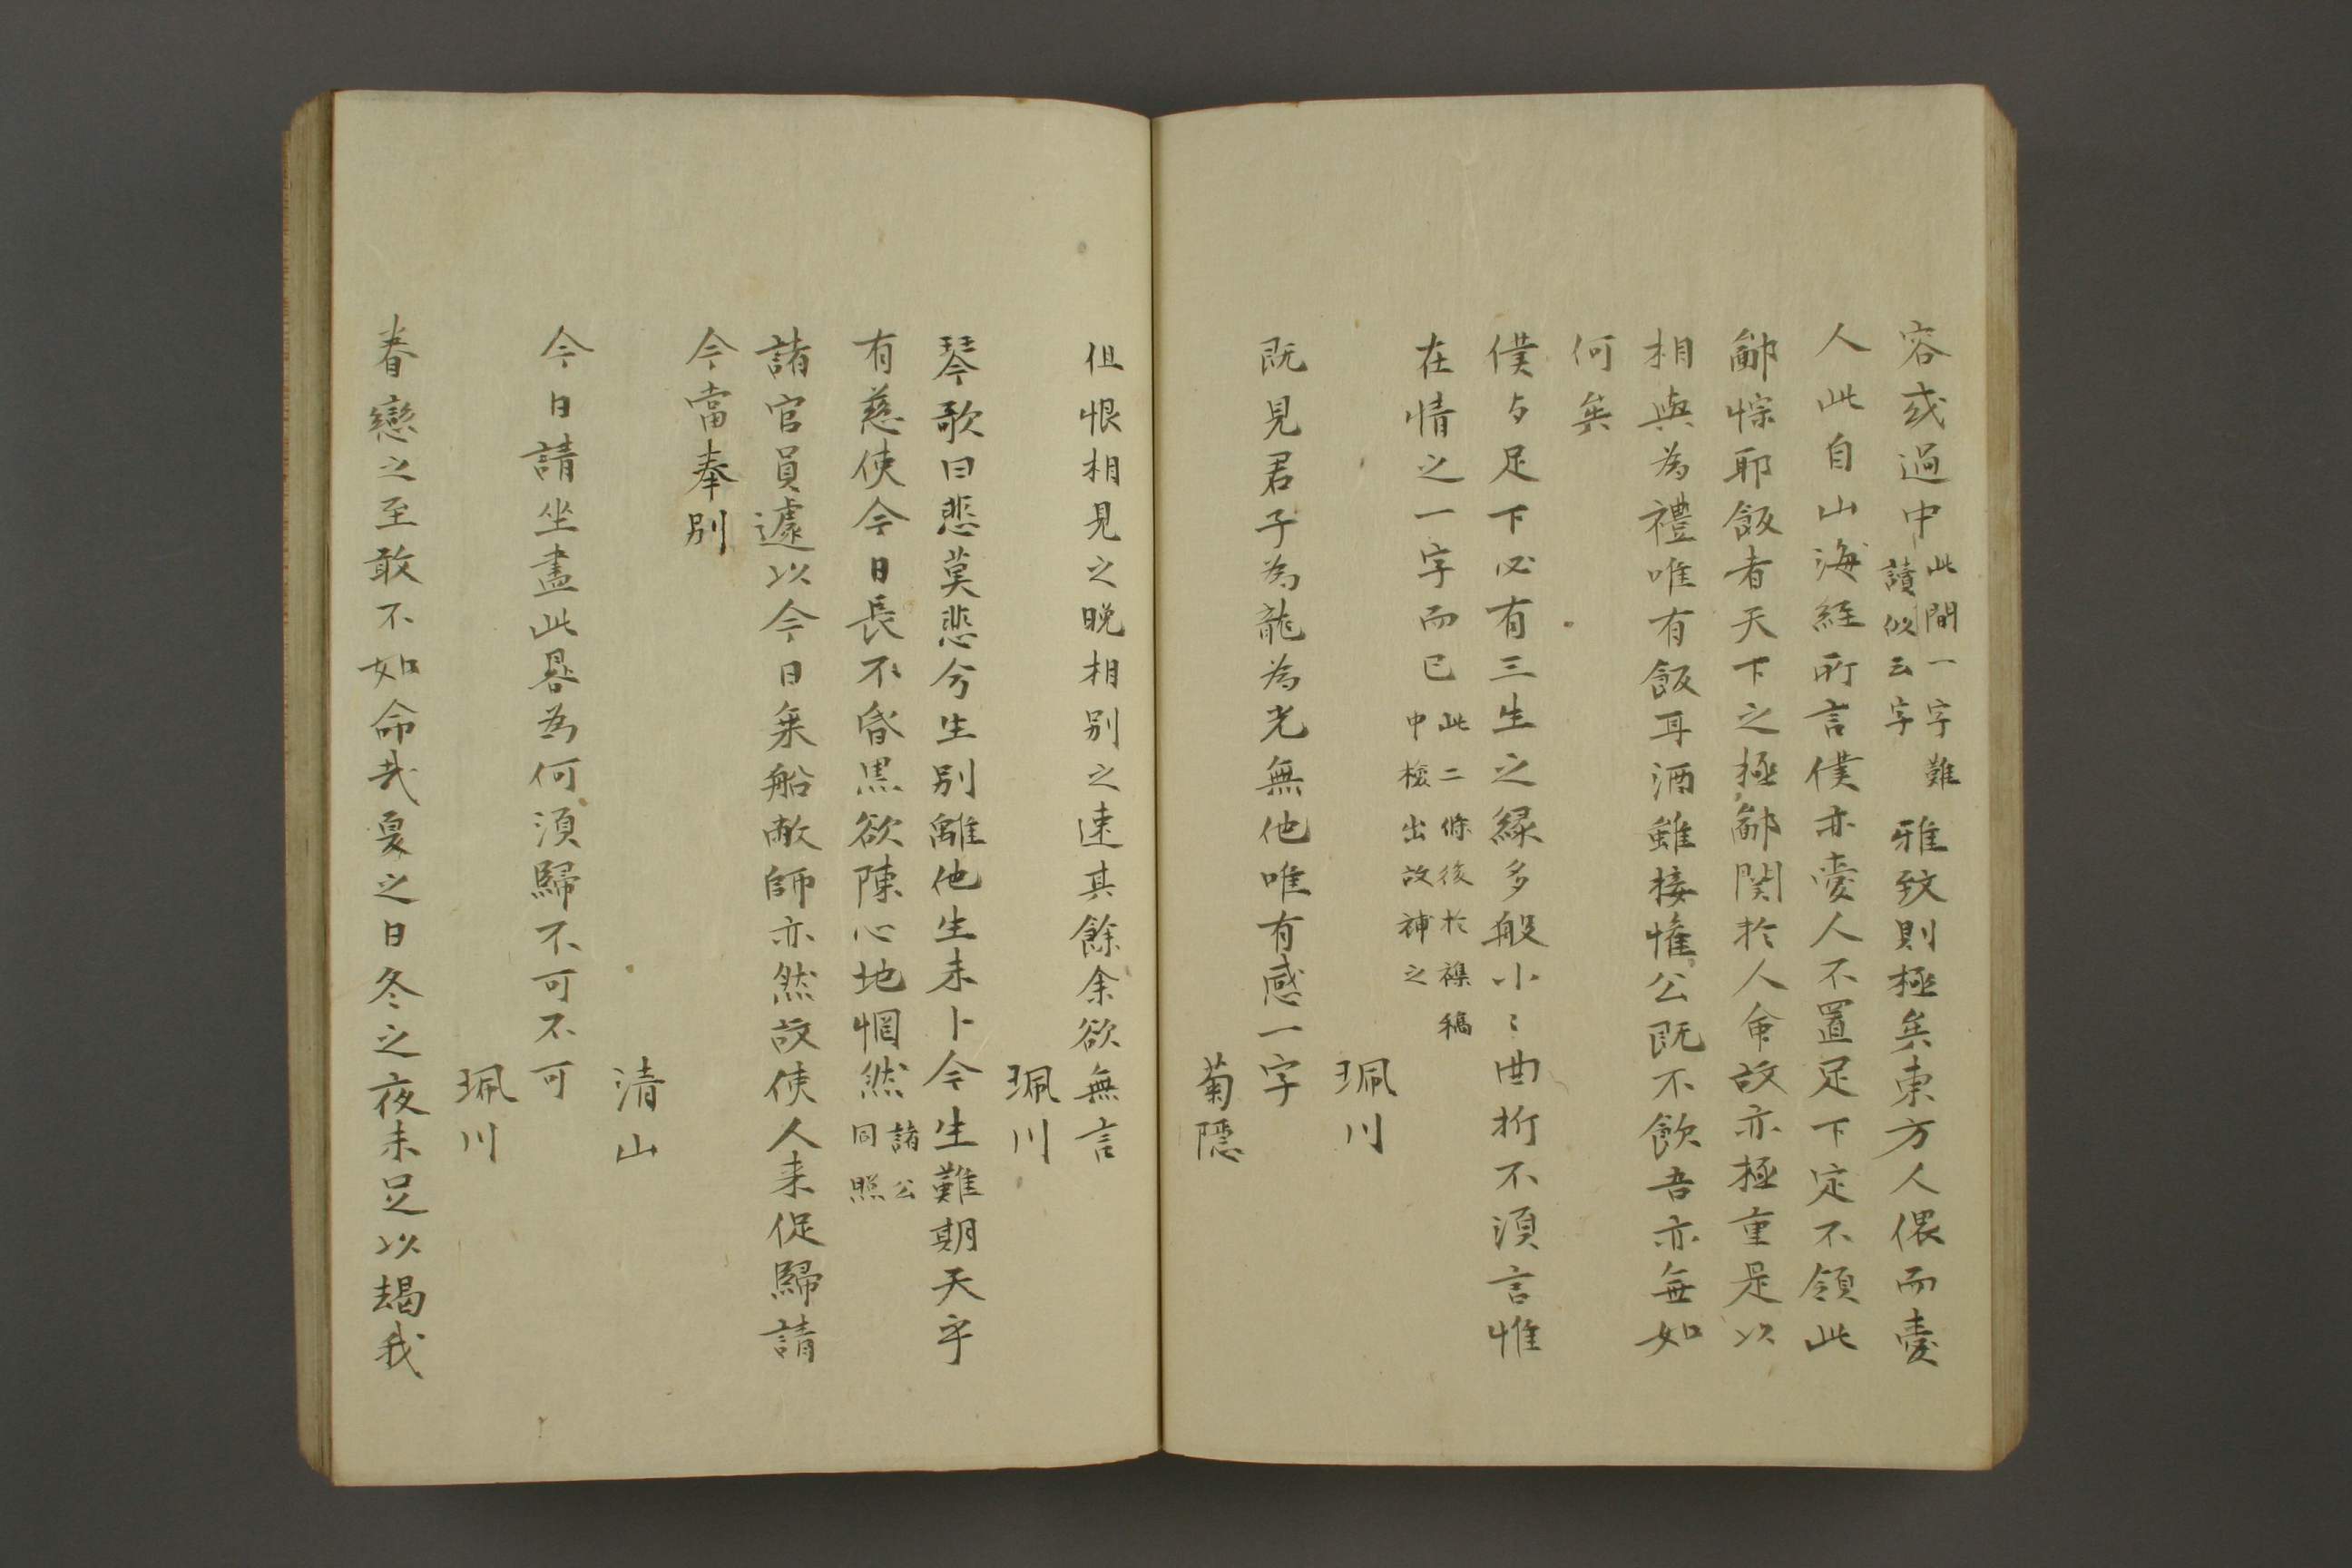 容或過中此間一字難讀似云字雅致則極矣東方人偎而愛
人此自山海経所言僕亦愛人不置足下定不領此
鄙悰耶飯者天下之極鄙関於人命故亦極重是以
相與為禮唯有飯耳酒雖接懽公既不飲吾亦無如
何矣
僕与足下必有三生之緑多般小〻曲折不須言惟
在情之一字而已此二條後於襍稿中檢出故補之
珮川
既見君子為龍為光無他唯有感一字
菊隱
但恨相見之晚相別之速其餘余欲無言
珮川
琴歌曰悲莫悲兮生別離他生未卜今生難期天乎
有慈使今日長不昏黒欲陳心地惘然諸公同照
諸官員遽以今日乗船敝師亦然故使人来促歸請
今當奉別
清山
今日請坐盡此晷為何須歸不可可不可
珮川
眷戀之至敢不如命哉夏之日冬之夜未足以竭我